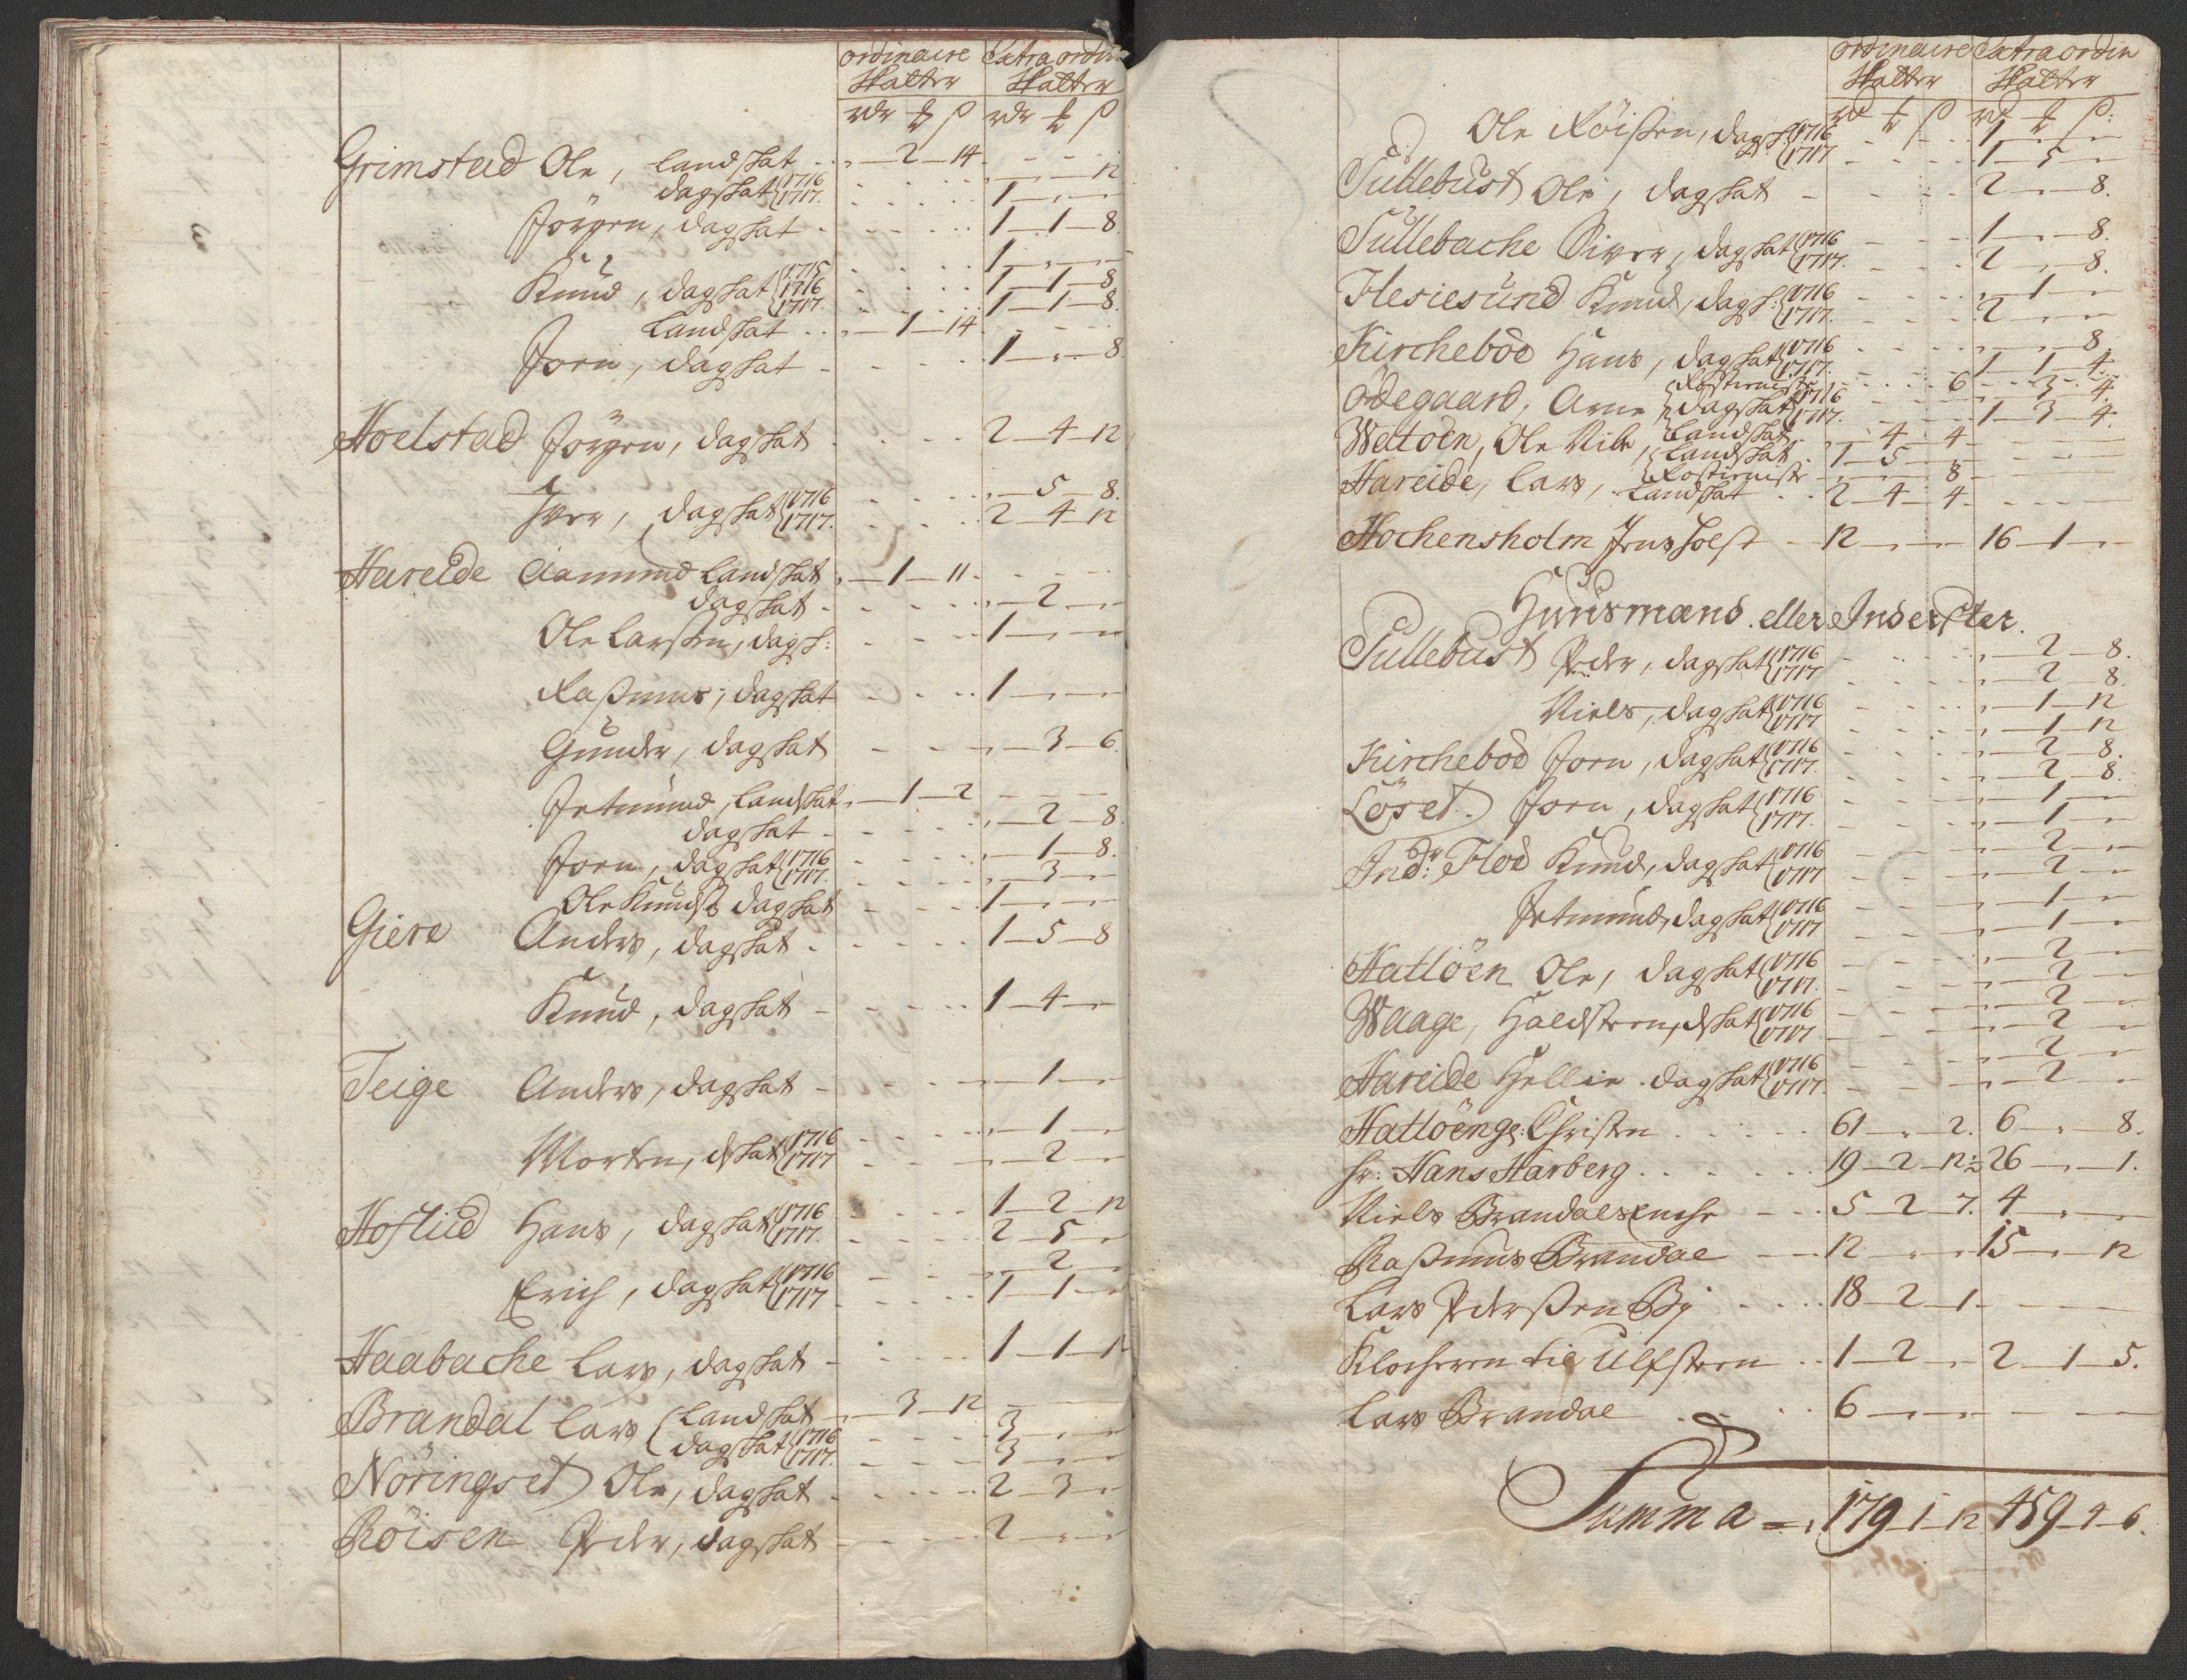 ordinaire Extraordin
Skatter Skatter
rdr ß rdr ß
Grimstad Ole, landskat - 2 - 14
dagskat 1716 - - 12
1717. 1 - -
Jörgen, dagskat 1 - 1 - 8
Knud, dagskat 1715 1 - -
1716 1 - 1 - 8
1717. 1 - 1 - 8
landskat - 1 - 14
Jorn, dagskat 1 - - 8
Hoelstad Jörgen, dagskat 2 - 4 - 12
Iver, dagskat 1716 - 5 - 8.
1717. 2 - 4 - 12
Hareide Aamund landskat - 1 - 11
dagskat - 2 -
Ole Larßen, dagsk: 1 - -
Raßmus, dagskat 1 - -
Gunder, dagskat - 3 - 6.
Jetmund, landskat - 1 - 2
dagskat - 2 - 8.
Jorn, dagskat 1716 - 1 - 8.
1717. - 3 -
Ole Knuds: dagskat 1 - -
Giere Anders, dagskat 1 - 5 - 8
Knud, dagskat 1 - 4 -
Teige Anders, dagskat - 1 -
Morten, dskat 1716 - 1 -
1717 - 2 -
Hoflid Hans, dagskat 1716 1 - 2 - 12
1717. 2 - 5 -
Erich, dagskat 1716 - 2 -
1717 1 - 1 -
Haabache Lars, dagskat 1 - 1 - 12
Brandal Lars landskat - 3 - 12
dagskat 1716 3 - -
1717. 3 - -
Nöringset Ole, dagskat 2 - 3 -
Röisen Peder, dagskat 2 - -
ordinaire Extraordin
Skatter Skatter
rd ß rd ß:
Ole Röißen, dagsk 1716 1 - -
1717 1 - 5 -
Sullebust Ole, dagskat 2 - - 8.
Sullebache Siver, dagskat 1716 1 - - 8.
1717. 2 - - 8.
Flesiesund Knud, dagsk: 1716 - 1 -
1717. 2 - -
Kircheböe Hans, dagskat 1716 - - 8.
1717. 1 - 1 - 4.
Ödegaard, Arne Rostieniste - - 6
dagskat 1716 - 3 - 4.
1717. 1 - 3 - 4.
Watöen, Ole Nils, landskat - 4 - 4
landskat 1 - 5 -
Hareide, Lars, Rostieniste - - 8
landskat 2 - 4 - 4
Hochensholm Jens Holst 12 - - 16 - 1 -
Huusmænd eller Inderster.
Sullebust Peder, dagskat 1716 - 2 - 8.
1717 - 2 - 8.
Niels, dagskat 1716 - 1 - 12
1717 - 1 - 12
Kircheböe Jorn, dagskat 1716 - 2 - 8.
1717. - 2 - 8.
Löset Jorn, dagskat 1716 - 1 -
1717. - 1 -
Indr: Flöe Knud, dagskat 1716 - 2 -
1717 - 2 -
Jetmund, dagskat 1716 - 1 -
1717 - 1 -
Hatlöen Ole, dagskat 1716 - 2 -
1717. - 2 -
Waage, Haldsteen, dskat 1716 - 2 -
1717 - 2 -
Hareide Hellie dagskat 1716 - 2 -
1717. - 2 -
Hatlöeng: Christen 61 - - 2. 6 - - 8.
hr: Hans Harberg 19 - 2 - 12½ 26 - - 1.
Niels Brandals Enche 5 - 2 - 7. 4 - -
Raßmus Brandal 12 - - 15 - - 12
Lars Pederßen By 18 - 2 - 1.
Klocheren til Ulfsteen 1 - 2 - 2 - 1 - 5.
Lars Brandal 6 - -
Summa = 179 - 1 - 12 459 - 4 - 6.